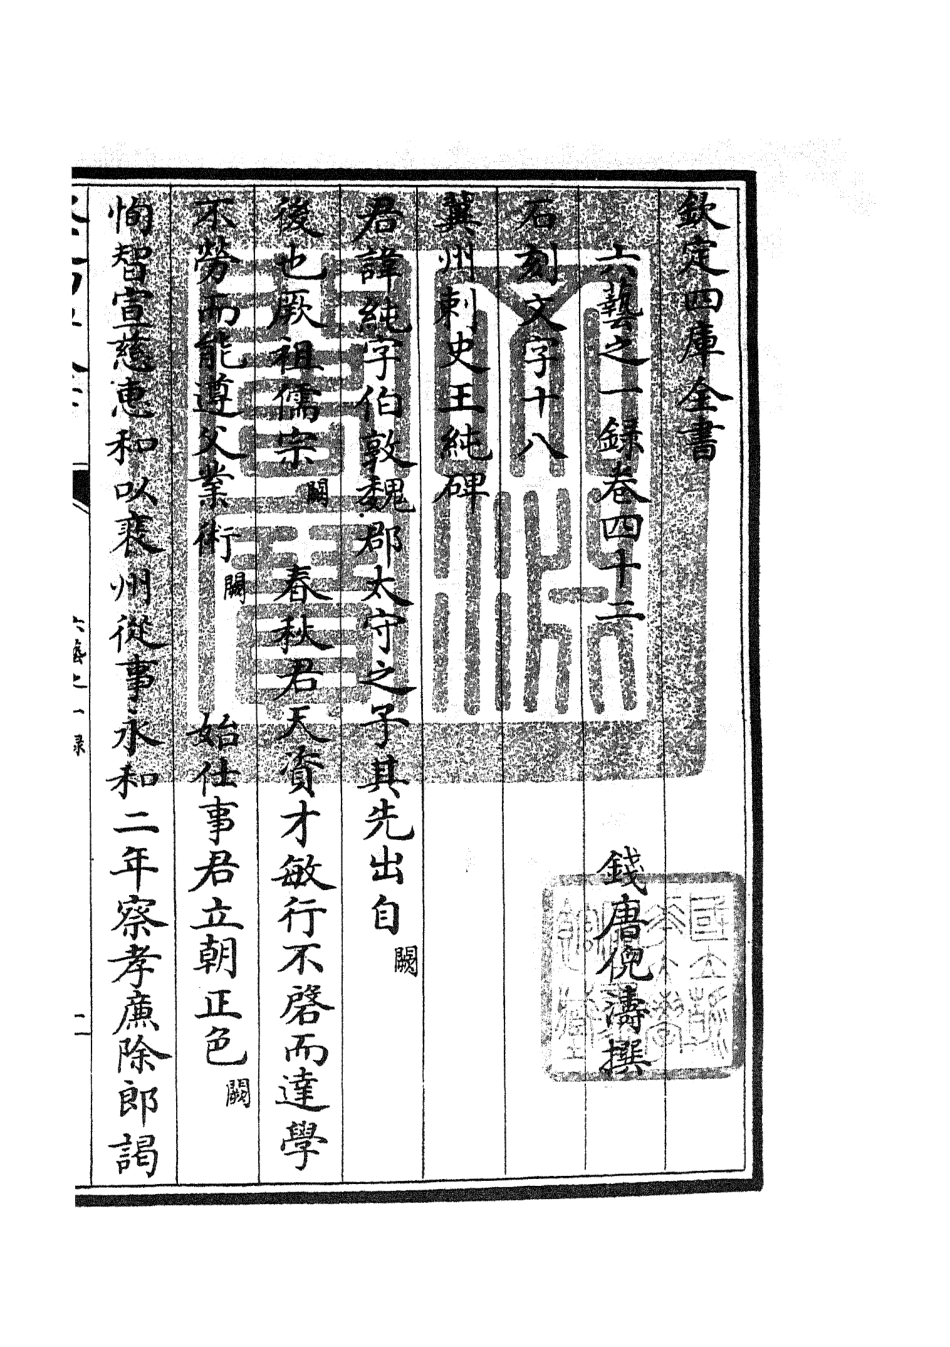 欽定四庫全書
六藝之一錄卷四十二
錢唐倪濤撰
石刻文字十八
冀州刺史王純碑
君諱純字伯敦魏郡太守之子其先出自闕
後也厥祖儒宗闕春秋君天資才敏行不啓而達學
不勞而能遵父業術闕始仕事君立朝正色闕
恂智宣慈惠和以裹州從事永和二年察孝廉除郎謁
六藝之一錄